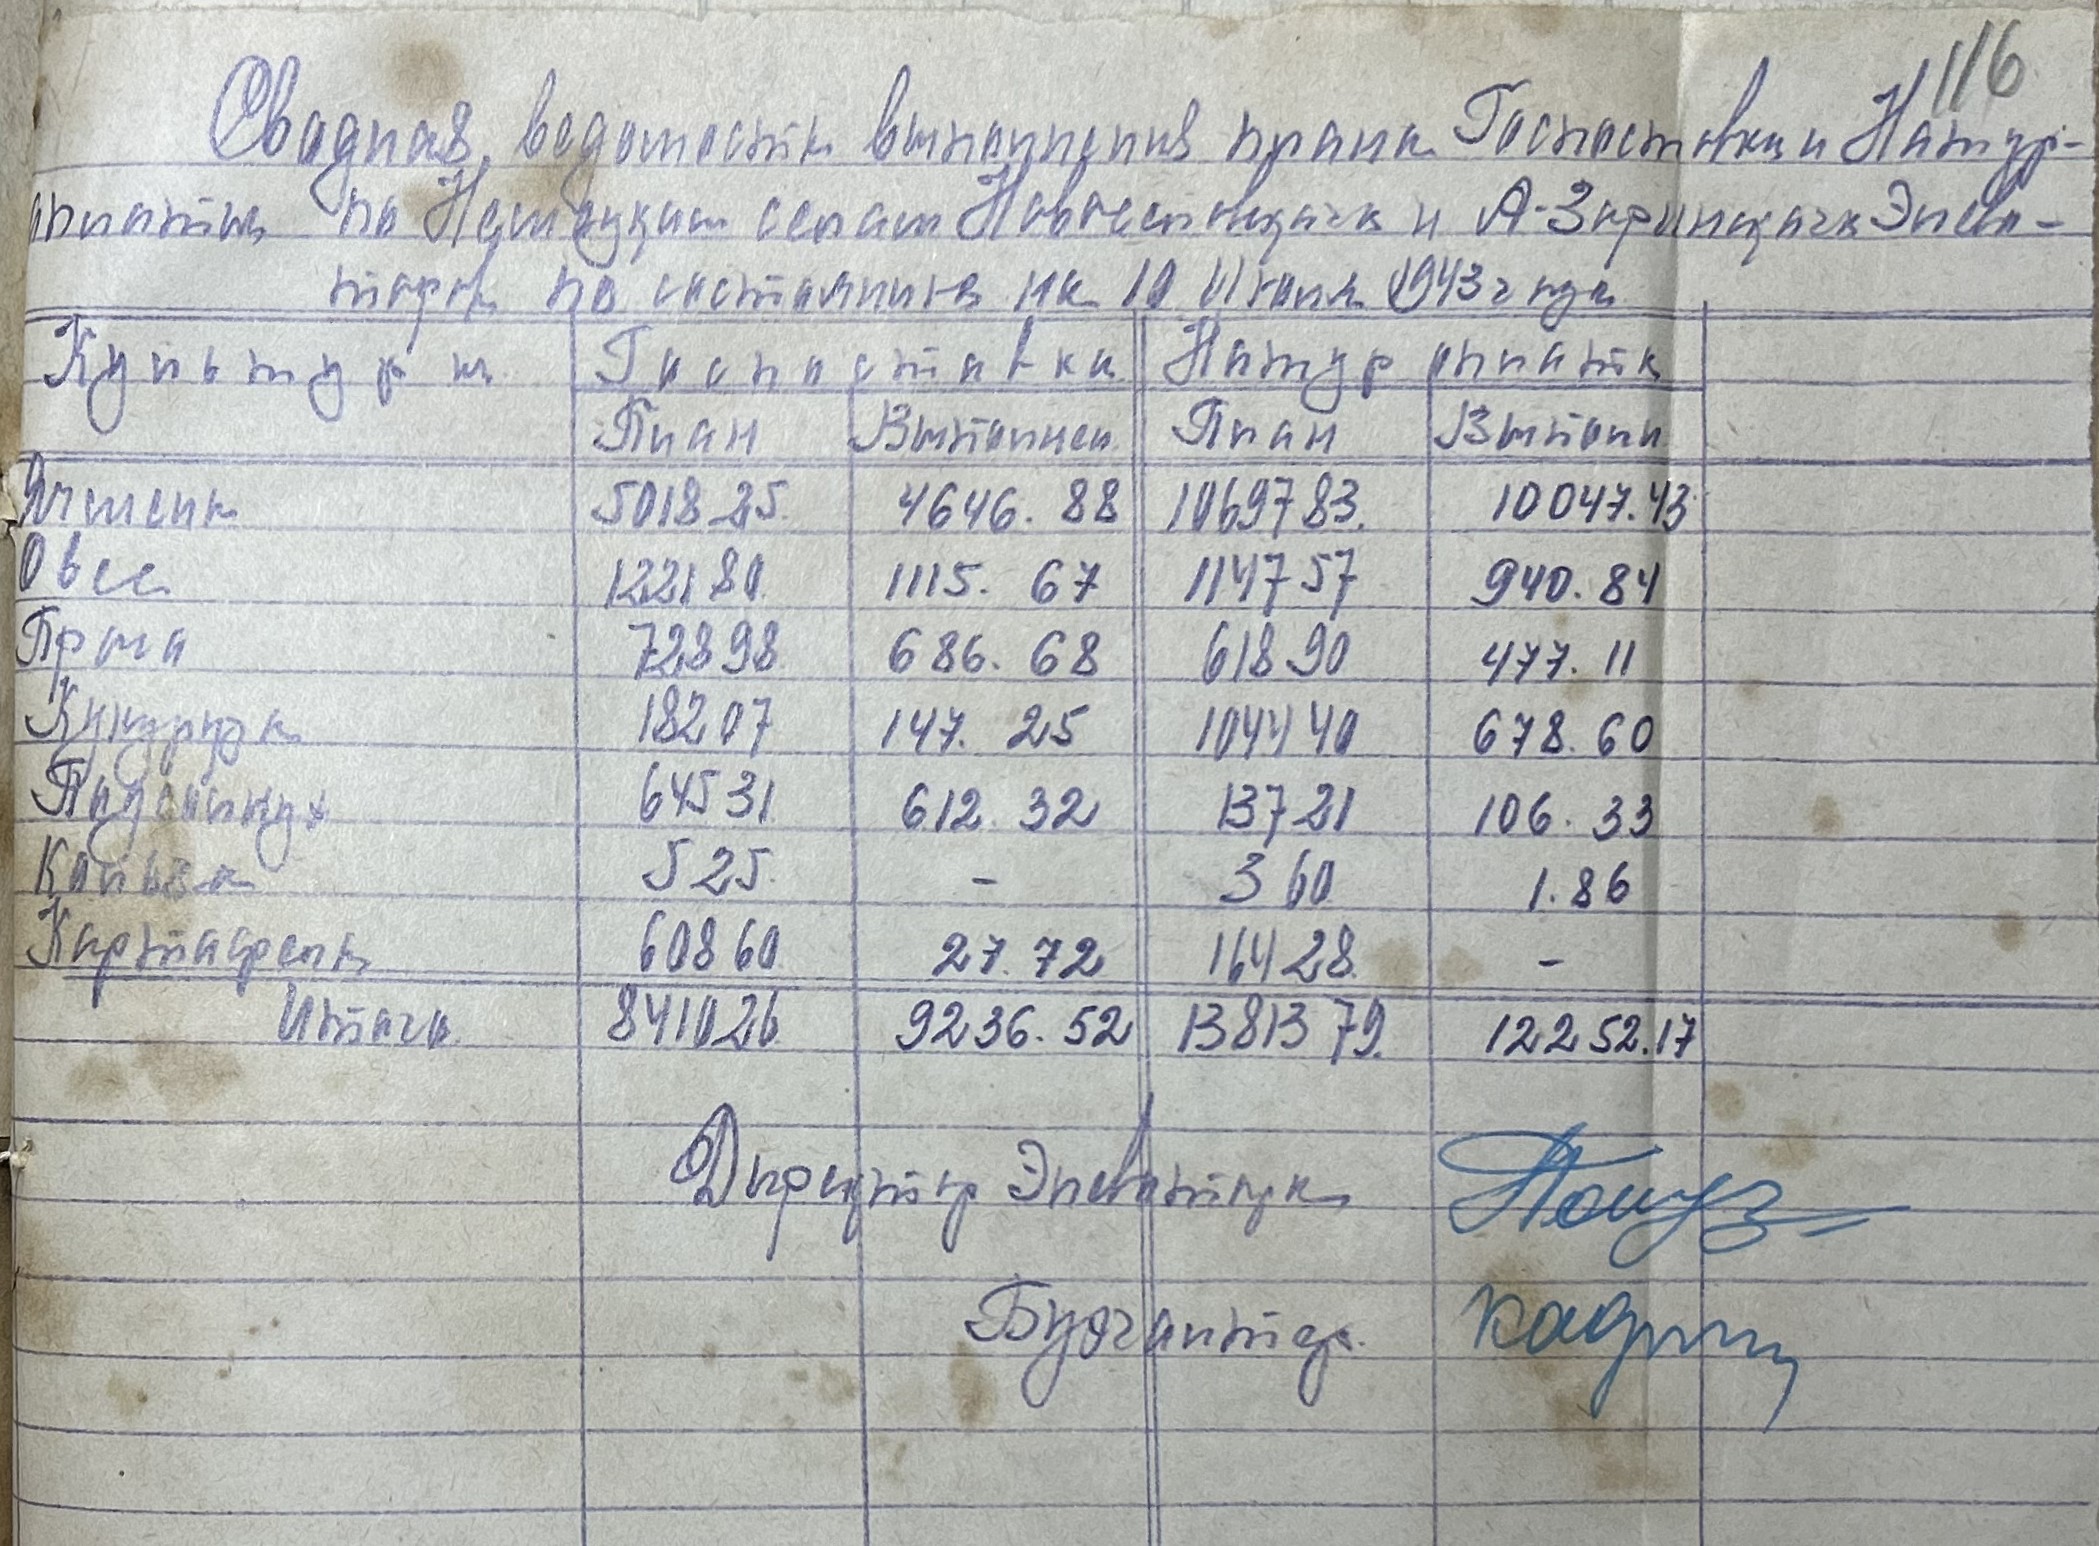 116
Сводная ведомость выполнения плана Госпоставки и Натур-
оплаты по Немецким селам и А-Заринского Элева-
тора по состоянию на 10 Июля 1943 года
Культуры Госпоставки Натуроплаты
План Выполнен План Выполн
Ячмень 5018 25 4646. 88 10697 83. 10047. 43
Овес 1221 80 1115. 67 1147 57 940. 84
Проса 728 98 686. 68 618 90 477. 11
Кукуруза 182 07 147. 25 1044 40 678. 60
Подсолнух 645 31 612. 32 137 21 106. 33
Кольза 5 25 - 3 60 1. 86
Картофель 608 60 27. 72 164 28 -
Итого 8410 26 9236. 52 13813 79. 12252. 17
Директор Элеватора
Бухгалтер